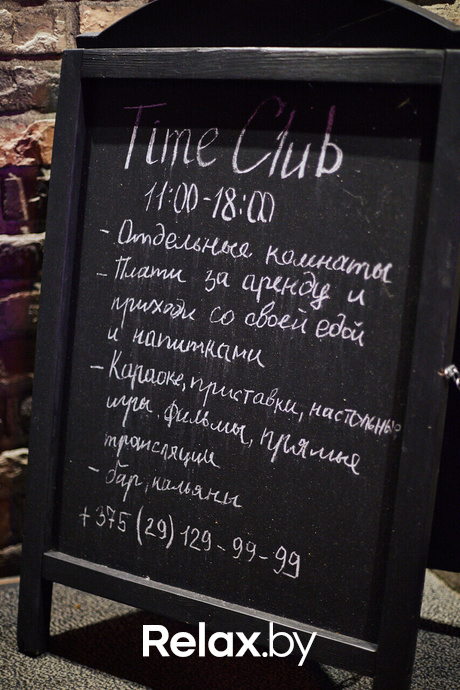 Time Club
11:00-18:00
- Отдельные комнаты
- Плати за аренду и
приходи со своей едой
и напитками
- Караоке, приставки, настольные
игры, фильмы, прямые
трансляции
- бар, кальяны
+375 (29) 129-99-99
Relax.by